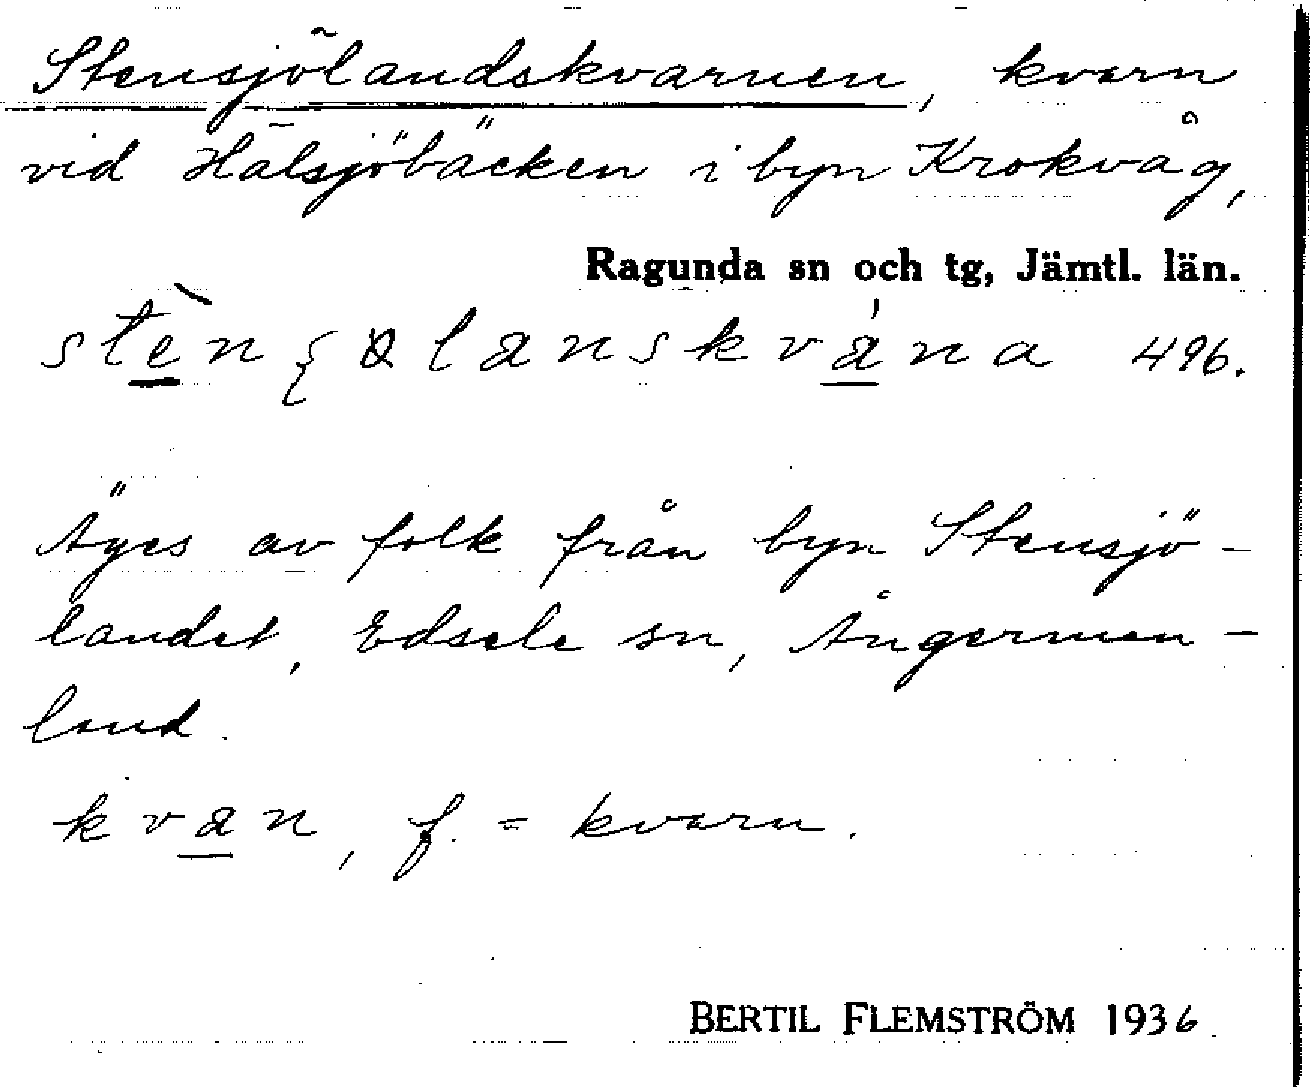 Stensjölandskvarnen, kvarn
vid Hälsjöbäcken i byn Krokvåg,
Ragunda sn och tg, Jämtl. län.
stèn ʂɷlanskvána 496.
Äges av folk från byn Stensjö-
landet, Edsele sn, Ångerman-
land.
kvan, f. = kvarn.
BERTIL FLEMSTRÖM 1936